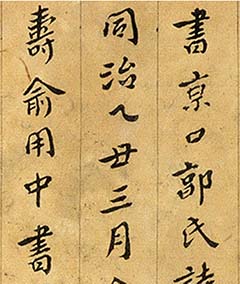 書京口郭氏
同治乙丑三月
壽俞用中書